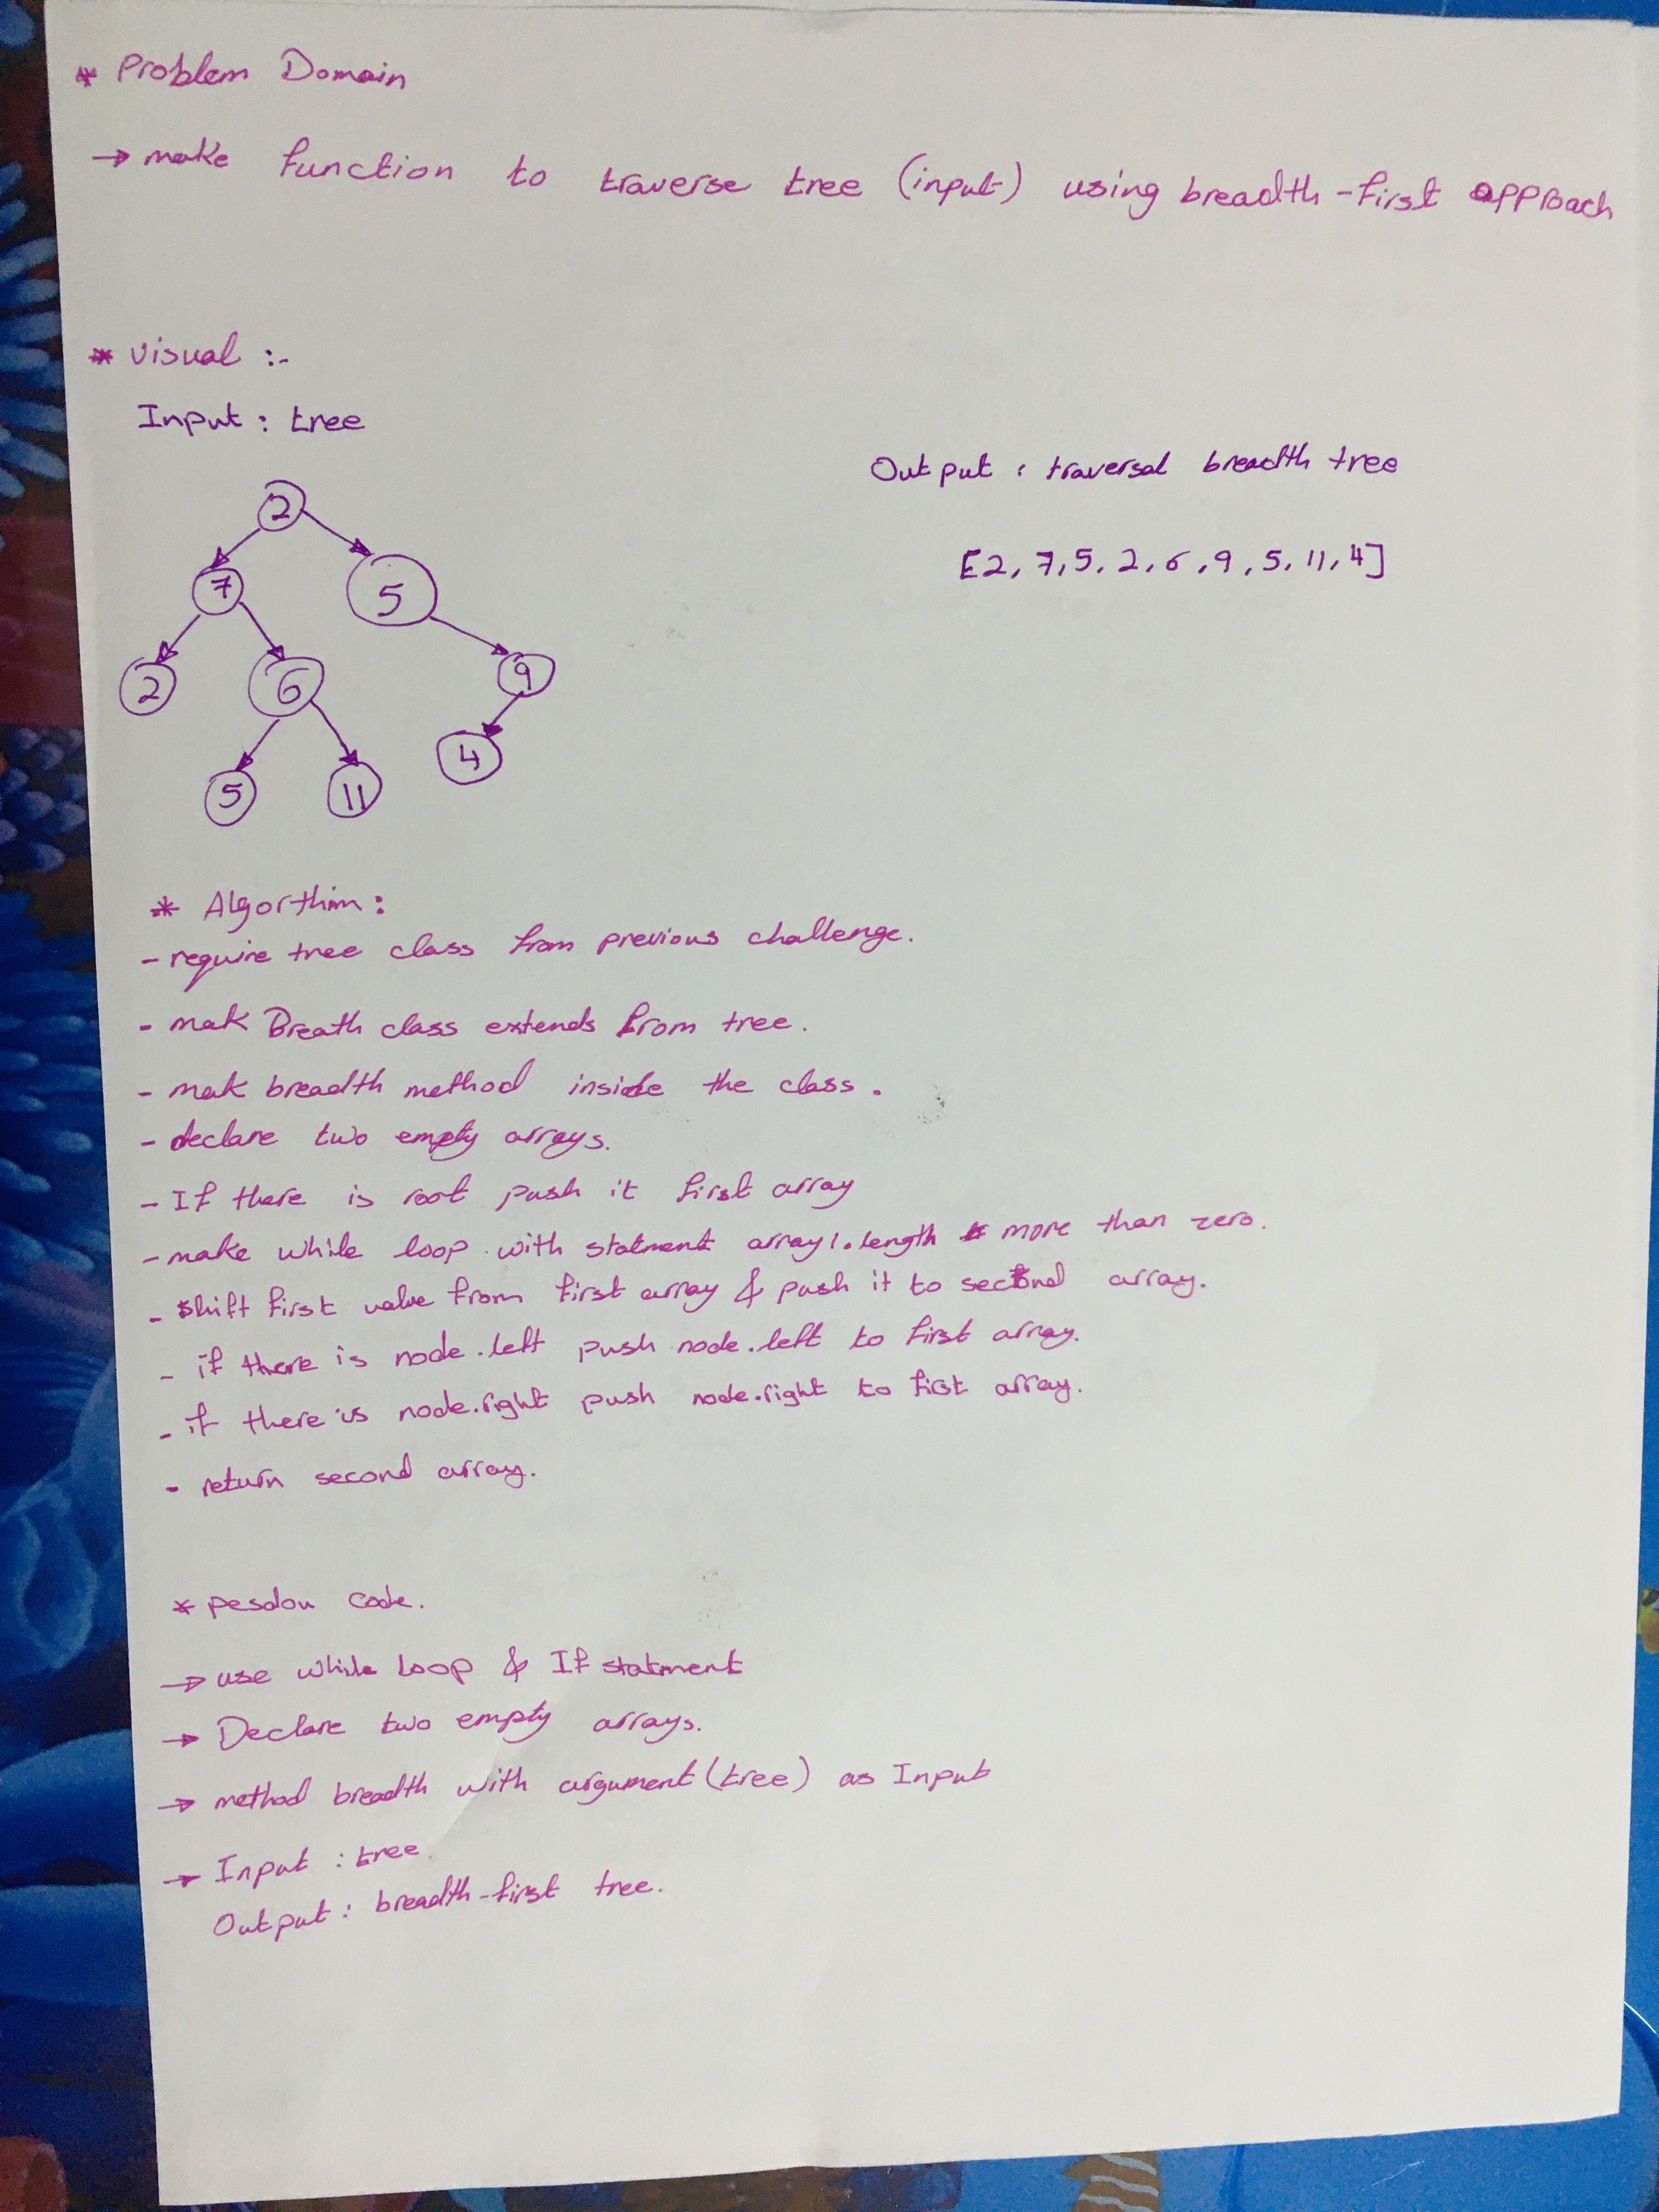 * Problem Domain
→ make function to traverse tree (input) using breadth-first approach
* visual :-
Input : tree
Output : traversal breadth tree
[2, 7, 5, 2, 6, 9, 5, 11, 4]
2
7 5
2 6 9
4
5 11
* Algorthim :
- require tree class from previous challenge.
- mak Breath class extends from tree.
- mak breadth method inside the class.
- declare two empty arrays.
- If there is root push it first array
- make while loop with statment array1.length more than zero.
- shift first value from first array & push it to second array.
- if there is node.left push node.left to first array.
- if there is node.right push node.right to first array.
- return second array.
* pesdou code.
→ use while loop & If statment
→ Declare two empty arrays.
→ method breadth with argument (tree) as Input
→ Input : tree
Output : breadth-first tree.